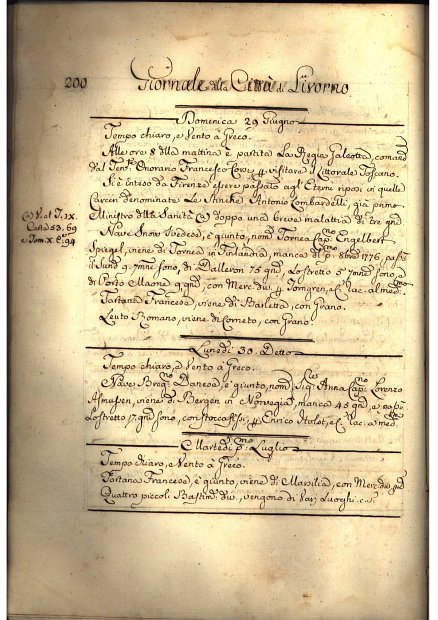 200 Giornale della Città di Livorno
Domenica 29 Giugno
Tempo chiaro, e Vento à Greco.
Alle ore 8 dlla mattina è partita La Regia Galeotta, comand
dal Tente Onorario Francesco visitare il Littorale Toscano.
Si è inteso da Firenze essere passato agl' Eterni riposi in quelle
Carceri denominate Le Stinche Antonio Lombardelli, già primo
Ministro della Sanità doppo una breve malattia di tre gni
Nave Snow Svedese, è giunto, nomta Tornea Capno Engelbert
Spaegel, viene di Tornea in Finlandia, manca di p. 8bre 1776, passò
il Sund 9. 7mne sono, di 75 gni, Lo stretto 5 7mne sono, e
di Porto Maone 9 gni, con Merc. dve Tomgren, e C. lac. al med.
Tartana Francese, viene di Barletta, con Grano.
Leuto Romano, viene di Corneto, con Grano.
Vol. et T. IX
Carta 53. 69
e Tom. X 94
Lunedi 30. Detto
Tempo chiaro, e Vento à Greco.
Nave Danese, è giunto, nom Anna Capno Lorenzo
Asmussen, viene di Bergen in Norvegia, manca 45 gni, e
Lo stretto 17 gni sono, con Stoccafissi Enrico e C. lac. a med.
Martedi pmo Luglio
Tempo chiaro, e Vento à Greco.
Tartana Francese, è giunto, viene di Marsilia, con Merc. dve
Quattro piccoli Bastimti dve, vengono di varj Luoghi